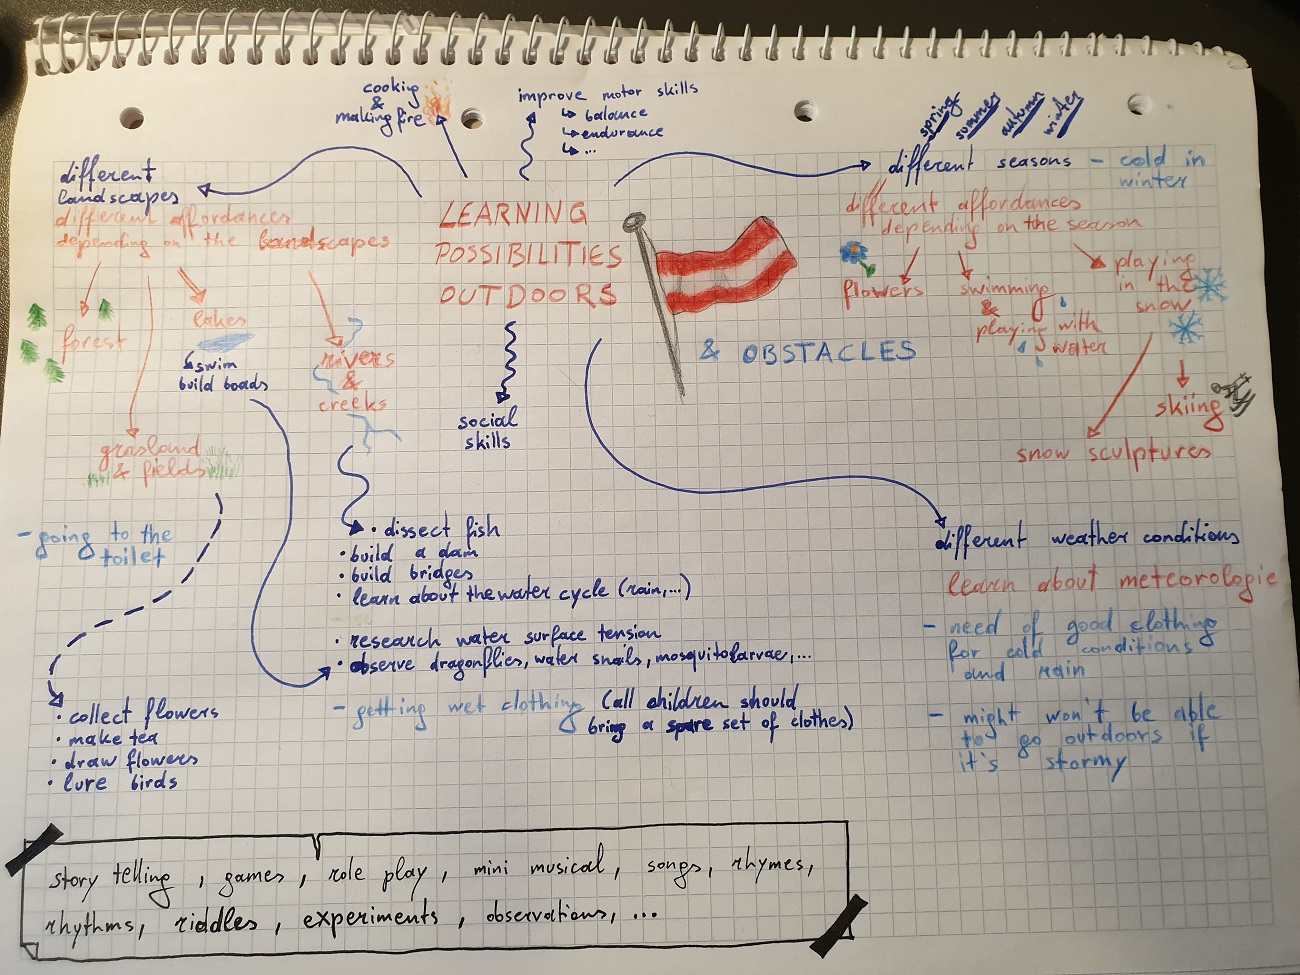 cooking
&
making fire
improve motor skills
↳ balance
↳ endurance
↳ ...
spring
summer
autumn
winter
different
landscapes
different affordances
depending on the landscapes
LEARNING
POSSIBILITIES
OUTDOORS
& OBSTACLES
different seasons
- cold in
winter
different affordances
depending on the season
flowers
swimming
&
playing with
water
playing
in the
snow
skiing
snow sculptures
forest
lakes
↳ swim
build boads
rivers
&
creeks
grasland
& fields
social
skills
- going to the
toilet
• dissect fish
• build a dam
• build bridges
• learn about the water cycle (rain,...)
• research water surface tension
• observe dragonflies, water snails, mosquitolarvae,...
- getting wet clothing (all children should
bring a spare set of clothes)
different weather conditions
learn about meteorologie
- need of good clothing
for cold conditions
and rain
- might won't be able
to go outdoors if
it's stormy
• collect flowers
• make tea
• draw flowers
• lure birds
story telling, games, role play, mini musical, songs, rhymes,
rhythms, riddles, experiments, observations, ...